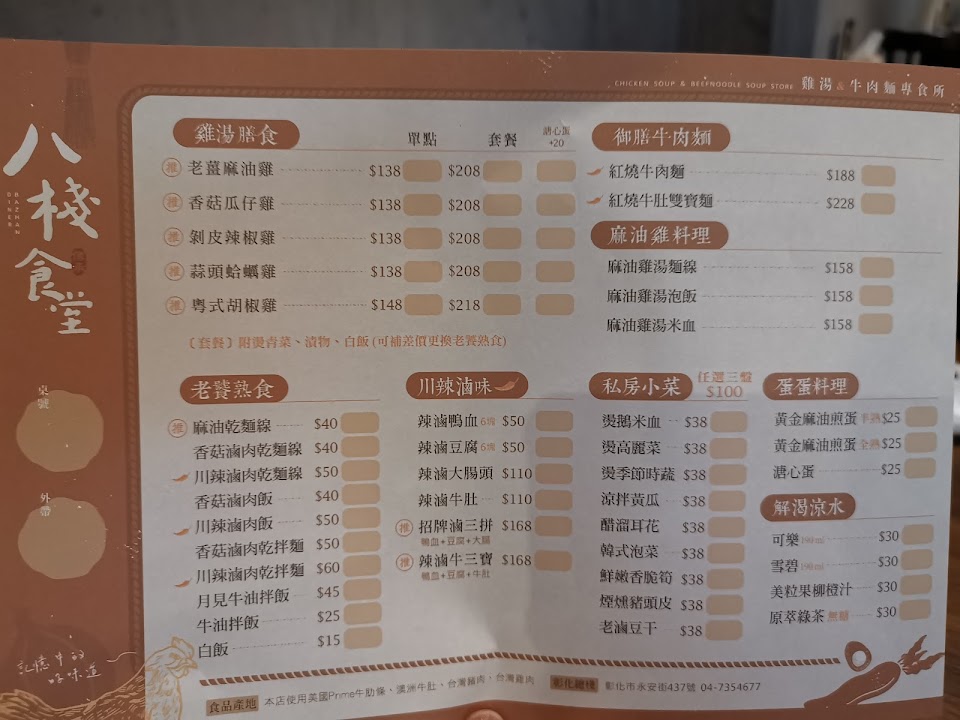 CHICKEN SOUP & BEEFNOODLE SOUP STORE 雞湯&牛肉麵專食所
八棧食堂
BAZHAN DINER
桌號
外帶
記憶中的
好味道
雞湯膳食 單點 套餐 溏心蛋+20
推 老薑麻油雞 $138 $208
推 香菇瓜仔雞 $138 $208
推 剝皮辣椒雞 $138 $208
推 蒜頭蛤蠣雞 $138 $208
推 粵式胡椒雞 $148 $218
〔套餐〕附燙青菜、漬物、白飯(可補差價更換老饕熟食)
御膳牛肉麵
紅燒牛肉麵 $188
紅燒牛肚雙寶麵 $228
麻油雞料理
麻油雞湯麵線 $158
麻油雞湯泡飯 $158
麻油雞湯米血 $158
老饕熟食
推 麻油乾麵線 $40
香菇滷肉乾麵線 $40
川辣滷肉乾麵線 $50
香菇滷肉飯 $40
川辣滷肉飯 $50
香菇滷肉乾拌麵 $50
川辣滷肉乾拌麵 $60
月見牛油拌飯 $45
牛油拌飯 $25
白飯 $15
川辣滷味
辣滷鴨血 6塊 $50
辣滷豆腐 6塊 $50
辣滷大腸頭 $110
辣滷牛肚 $110
推 招牌滷三拼 $168
鴨血+豆腐+大腸
推 辣滷牛三寶 $168
鴨血+豆腐+牛肚
私房小菜 任選三盤 $100
燙鵝米血 $38
燙高麗菜 $38
燙季節時蔬 $38
涼拌黃瓜 $38
醋溜耳花 $38
韓式泡菜 $38
鮮嫩香脆筍 $38
煙燻豬頭皮 $38
老滷豆干 $38
蛋蛋料理
黃金麻油煎蛋 半熟 $25
黃金麻油煎蛋 全熟 $25
溏心蛋 $25
解渴涼水
可樂 190ml $30
雪碧 190ml $30
美粒果柳橙汁 $30
原萃綠茶 無糖 $30
食品產地 本店使用美國Prime牛肋條、澳洲牛肚、台灣豬肉、台灣雞肉 彰化總棧 彰化市永安街437號 04-7354677